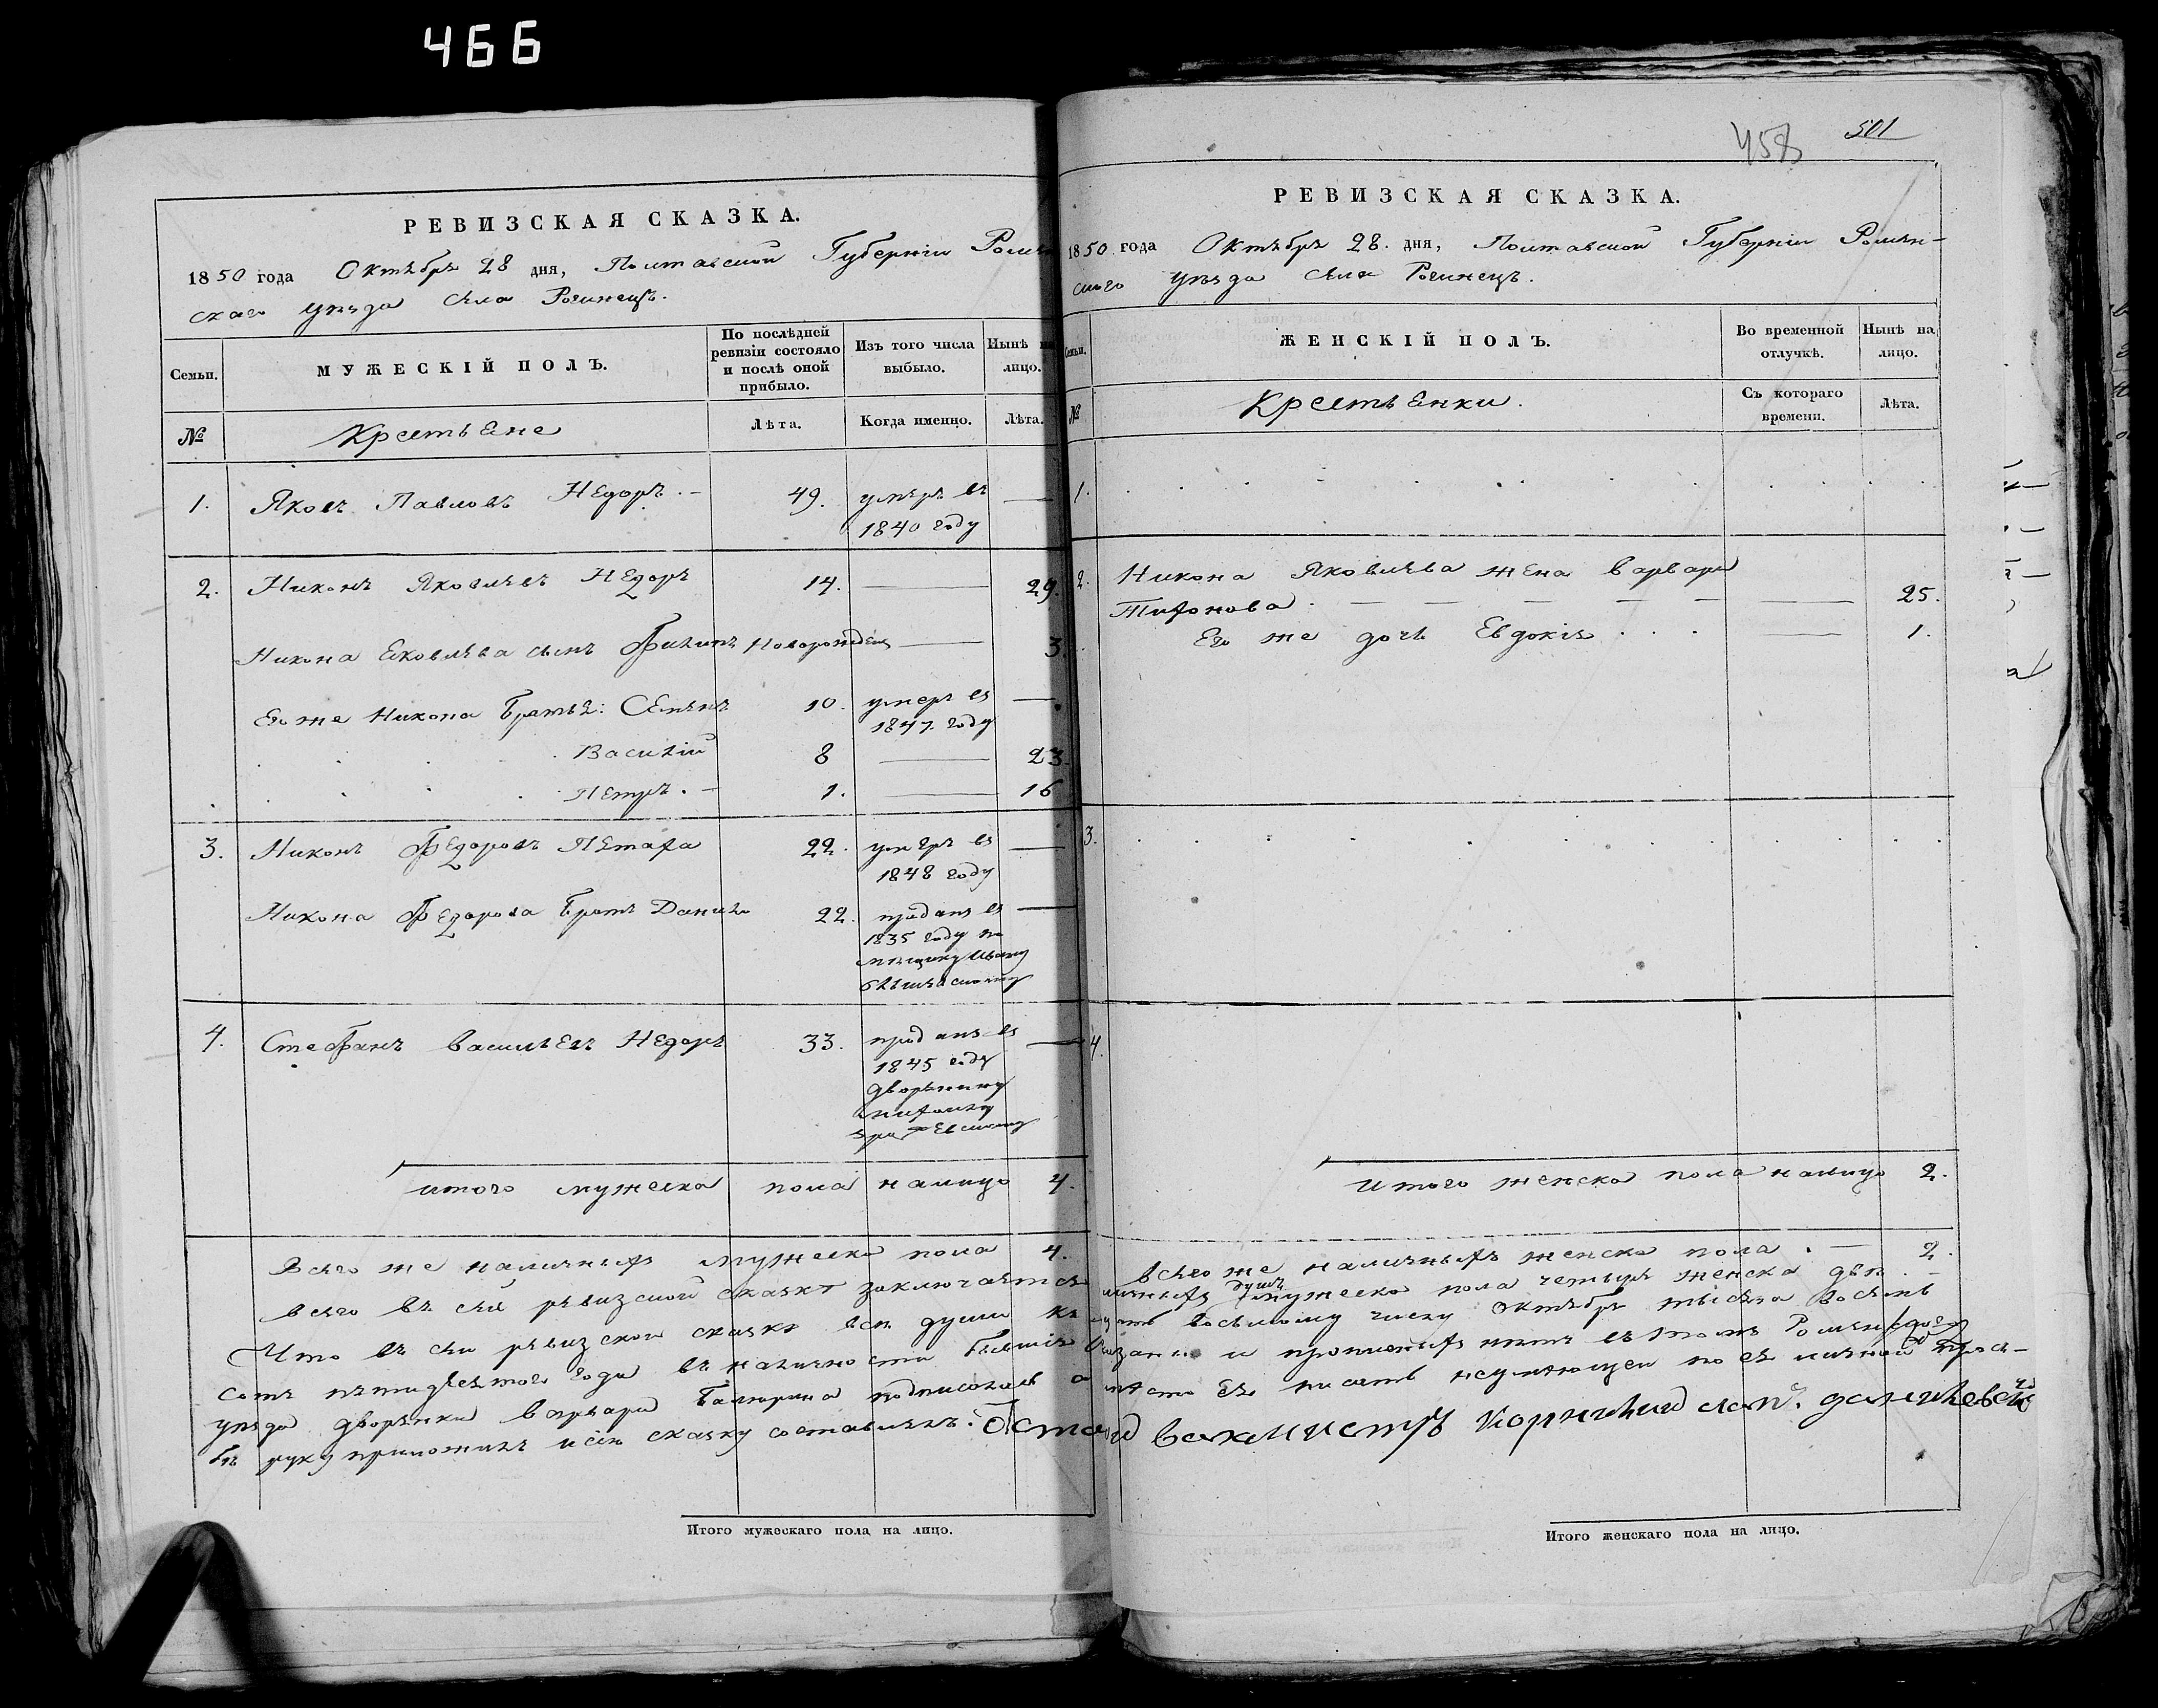 466
РЕВИЗСКАЯ СКАЗКА.
1850 года Октября 28 дня, Полтавской Губерніи Ромен
скаго уезда села Рогинецъ.
Семьи.
МУЖЕСКІЙ ПОЛЪ.
По послѣдней
ревизіи состояло
и послѣ оной
прибыло.
Изъ того числа
выбыло.
Нынѣ на
лицо.
№
Крестьяне
Лѣта.
Когда именно.
Лѣта.
1. Яковъ Павловъ Недоръ. 49. умеръ въ —
1840 году
2. Никонъ Яковлевъ Недоръ 14. — 29.
Никона Яковлева сынъ Филипъ Новорожден — 3.
Его же Никона братья: Семенъ 10. умеръ въ —
1847. году
Василій 8 — 23.
Петръ. 1. — 16
3. Никонъ Федоровъ Петаха 22. умеръ въ —
1848 году
Никона Федорова братъ Данило 22. проданъ въ —
1835 году по
мещику Ивану
4. Стефанъ Васильевъ Недоръ 33. проданъ въ —
1845 году
дворянину
итого мужеска пола налицо 4.
Всего же наличныхъ мужеска пола 4.
всего въ сей ревизской сказке заключается
Что въ сей ревизской сказке все души
сотъ пятидесятого года въ наличности бывшіе
уезда дворянки Варвары подписался
руку приложилъ и сію сказку составлялъ.
Итого мужескаго пола на лицо.
458 501
РЕВИЗСКАЯ СКАЗКА.
1850 года Октября 28. дня, Полтавской Губерніи Ромен-
ского уезда села Рогинецъ.
Семьи.
ЖЕНСКІЙ ПОЛЪ.
Во временной
отлучкѣ.
Нынѣ на
лицо.
№
Крестьенки.
Съ котораго
времени.
Лѣта.
1.
2. Никона Яковлева жена Варвара
Тихонова. — 25.
Его же дочь Евдокія — 1.
3.
4.
Итого женска пола налицо 2.
Всего же наличныхъ женска пола. — 2.
душъ
мужеска пола четыре женска две.
восьмому числу октября тысяча восемь
и прописныхъ нетъ въ томъ Роменского
место её писать неумеющей по её личной прозь-
Итого женскаго пола на лицо.